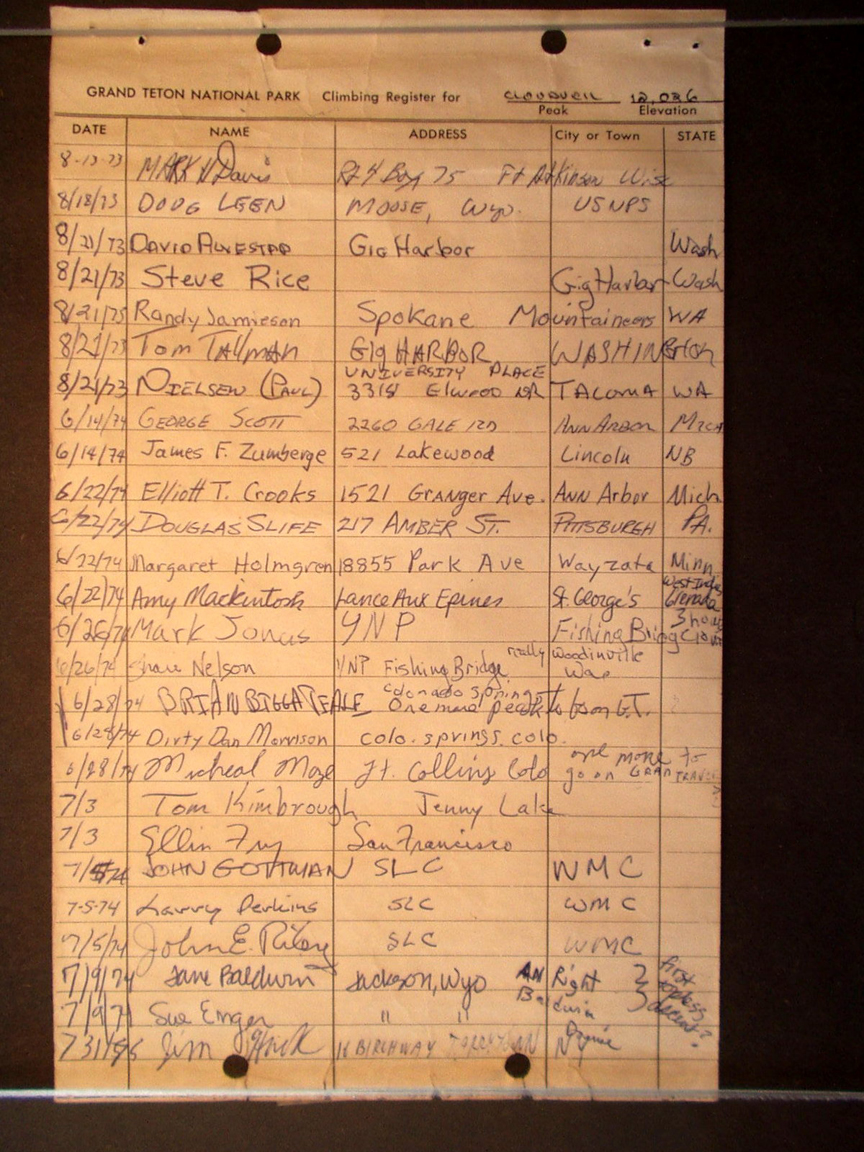 GRAND TETON NATIONAL PARK Climbing Register for CLOUDVEIL 12,026
Peak Elevation
DATE NAME ADDRESS City or Town STATE
8-13-73 MARK N Davis Rt 4 Box 75 Ft Atkinson Wisc
8/18/73 DOUG LEEN MOOSE, Wyo. USNPS
8/21/73 DAVID Gig Harbor Wash
8/21/73 Steve Rice Gig Harbor Wash
8/21/73 Randy Jamieson Spokane Mountaineers WA
8/21/73 Tom TAllMAN GIg HARBOR WASHINGton
UNIVERSITY PLACE
8/21/73 NIELSEN (PAUL) 3318 Elwood DR TACOMA WA
6/14/74 GEORGE SCOTT 2260 GALE RD ANN ARBOR MICH
6/14/74 James F. Zumberge 521 Lakewood Lincoln NB
6/22/74 Elliott T. Crooks 1521 Granger Ave. Ann Arbor Mich
6/22/74 DOUGLAS SLIFE 217 AMBER ST. PITTSBURGH PA.
6/22/74 Margaret Holmgren 18855 Park Ave Wayzata Minn
West Indies
6/22/74 Amy Mackintosh Lance Aux Epines St. George's Grenada
6/26/74 Mark Jonas YNP Fishing Bridge 3 hour
6/26/74 Nelson YNP Fishing Bridge really Woodinville
6/28/74 BRIAN Colorado Springs One more peak to G.T.
6/28/74 Dirty Dan Morrison colo. springs. colo.
6/28/74 Micheal Ft. Collins Colo one more to go on GRAND TRAVERSE
7/3 Tom Kimbrough Jenny Lake
7/3 Ellin Fry San Francisco
7/5/74 JOHN GOTTMAN SLC WMC
7-5-74 Larry Perkins SLC WMC
7/5/74 John E. Riley SLC WMC
7/9/74 Jane Baldwin Jackson, Wyo AN Right } first
7/9/74 Sue Enger " " Baldwin } topless ascent?
7/31/ Jim 16 BIRCHWAY NY